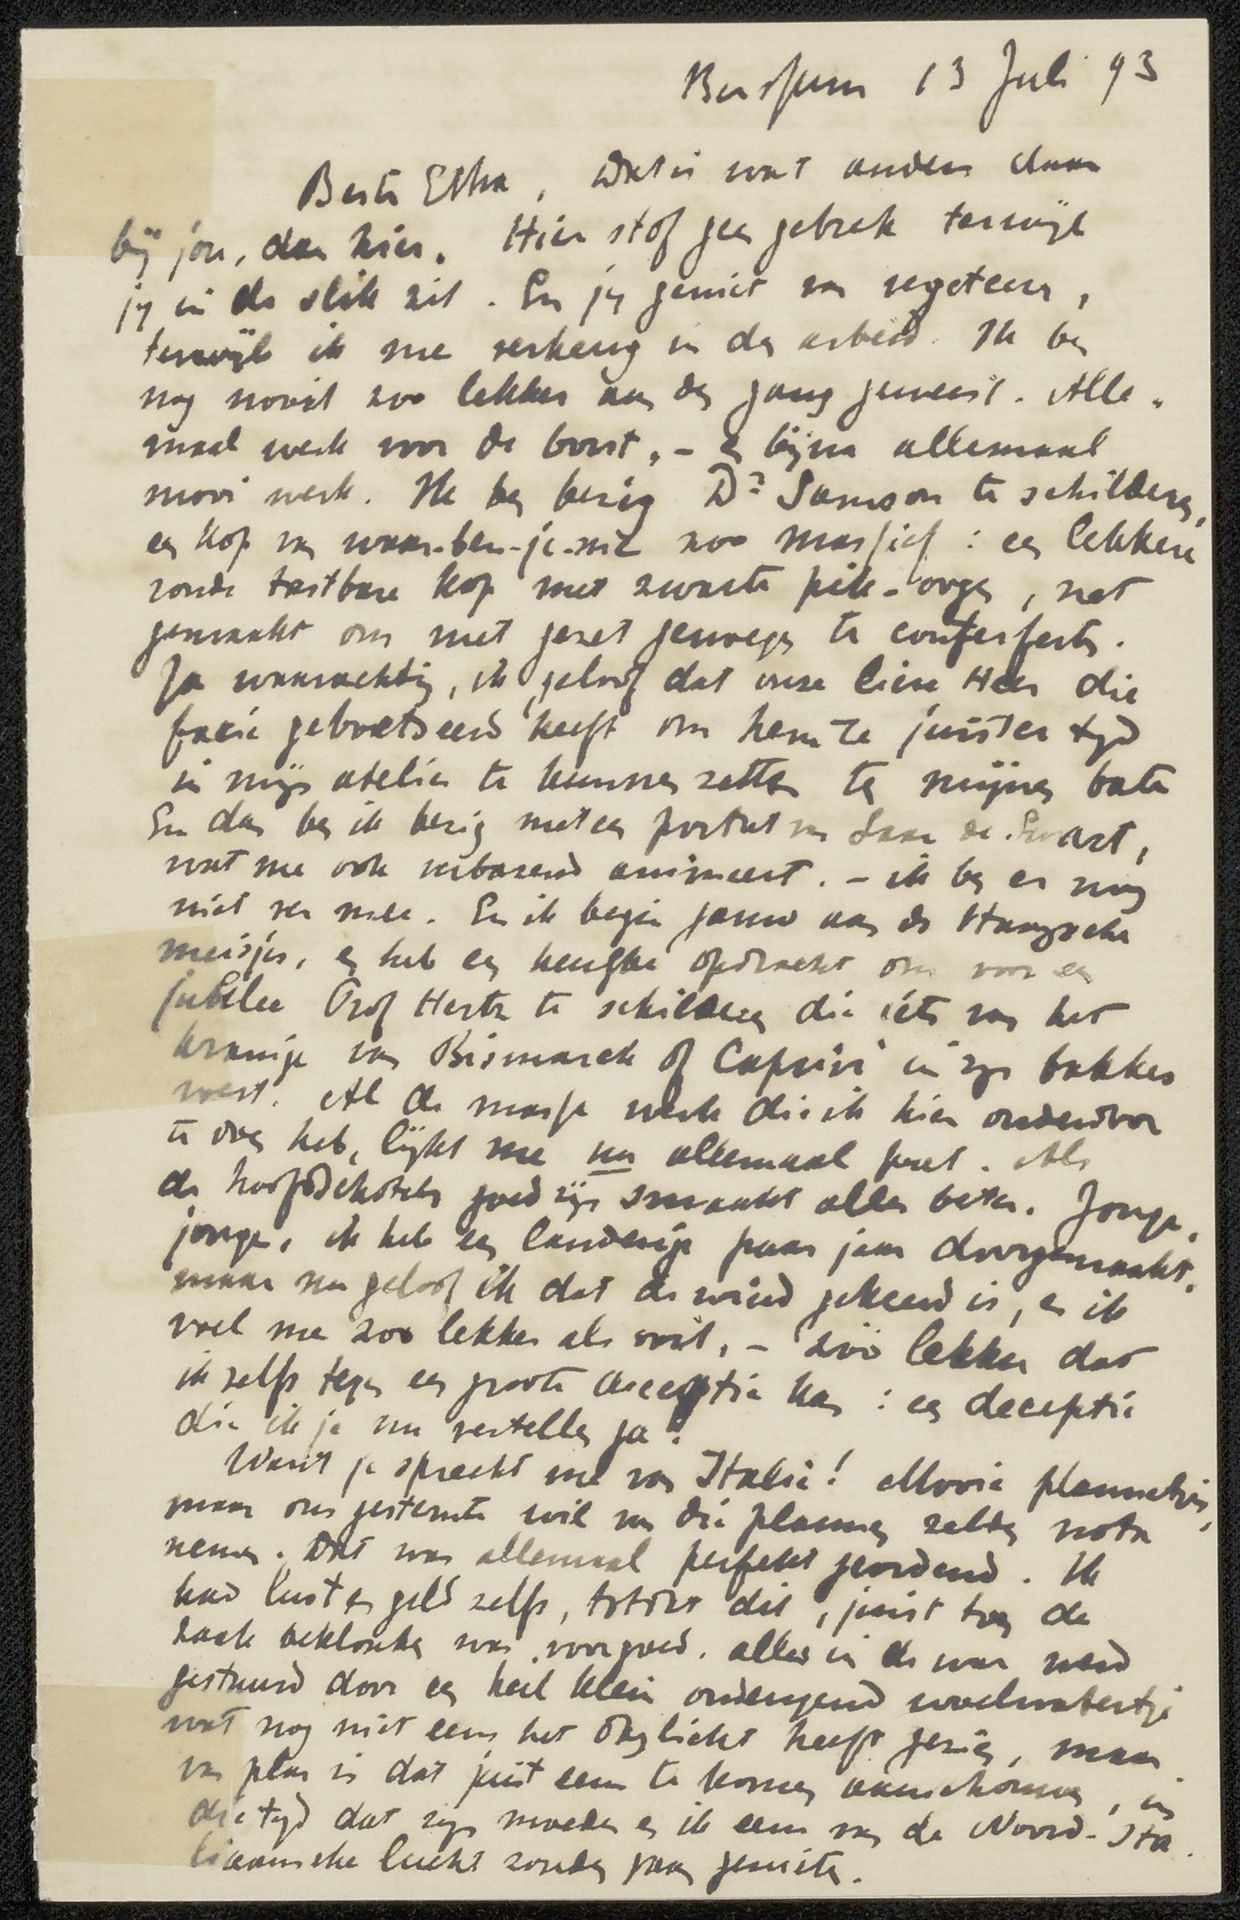 Bussum 13 Juli 93
Beste Etha, Dat is wat anders daar
bij jou, dan hier. Hier stof geen gebrek terwijl
jy in de slik zit. En jy geniet van vegeteeren,
terwijl ik me verheug in den arbeid. Ik ben
nog nooit zoo lekker aan den gang geweest. Alle-
maal werk voor de borst, – en bijna allemaal
mooi werk. Ik ben bezig Dr Samson te schilderen,
een kop van waar-ben-je-me zoo massief: een lekkere
ronde tastbare kop met zwarte pik-oogen, net
gemaakt om met genoegen te conterfeiten.
Ja waarachtig, ik geloof dat onze lieve Heer die
facie geboetseerd heeft om hem te juister tyd
in mijn atelier te kunnen zetten ten mijnen bate
En dan ben ik bezig met een portret van Saar de Swart,
wat me ook verbazend animeert. – ik ben er nog
niet ver mee. En ik begin gauw aan de Haagsche
meisjes, en heb een heusche opdracht om voor een
jubilee Prof Hertz te schilderen die iets van het
kranige van Bismarck of Caprivi in zyn bakkes
weest. Al de massa werk die ik hier onderdoor
te doen heb, lijkt me nu allemaal pret. Als
de hoofdschotels goed zijn smaakt alles beter. Jonge,
jonge, ik heb een landerige paar jaar doorgemaakt,
maar nu geloof ik dat de wind gekeerd is, en ik
voel me zoo lekker als ooit, – zóó lekker dat
ik zelfs tegen een groote deceptie kan: een deceptie
die ik je nu vertellen ga:
Want je spreekt me van Italie! Mooie plannetjes,
maar ons gesternte wil van die plannen zelden nota
nemen. Dat was allemaal perfekt geordend. Ik
had lust en geld zelfs, totdat dit, juist toen de
zaak beklonken was voorgoed, alles in de war werd
gestuurd door een heel klein ondeugend
wat nog niet eens het daglicht heeft gezien, maar
van plan is dat juist eens te komen aanschouwen, in
die tyd dat zyn moeder en ik eens van de Noord-Ita-
liaansche lucht zouden gaan genieten.